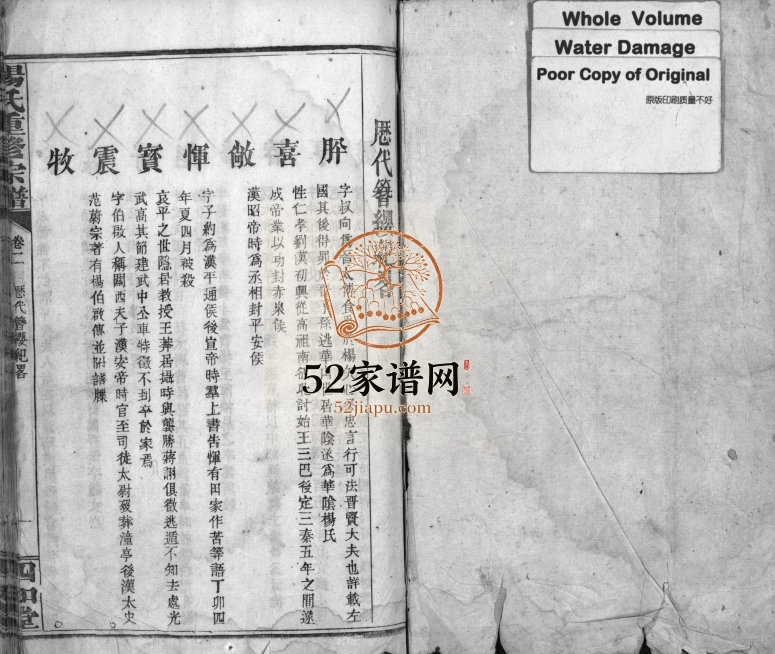 Whole Volume
Water Damage
Poor Copy of Original
原版印刷质量不好
歷代簪纓
肸
字叔向
忠言行可法晋賢大夫也詳載左
國其後得罪
逃華
居華陰遂爲華陰楊氏
喜
性仁孝劉漢初興從高祖南征
討始王三巴後定三秦五年之間遂
成帝業以功封赤泉侯
敞
漢昭帝時爲丞相封平安侯
惲
字子約爲漢平通侯後宣帝時羣上書告惲有田家作苦等語丁卯四
年夏四月被殺
寳
哀平之世隱居教授王莽居攝時與龔勝蔣詡俱徵逃遁不知去處光
武高其節建武中公車特徵不到卒於家焉
震
字伯啟人稱關西夫子漢安帝時官至司徒太尉歿葬潼亭後漢太史
范蔚宗著有楊伯啟傳並附譜牒
牧
楊氏重修宗譜
卷二
歷代簪纓紀畧
一
四知堂
52家谱网
52jiapu.com